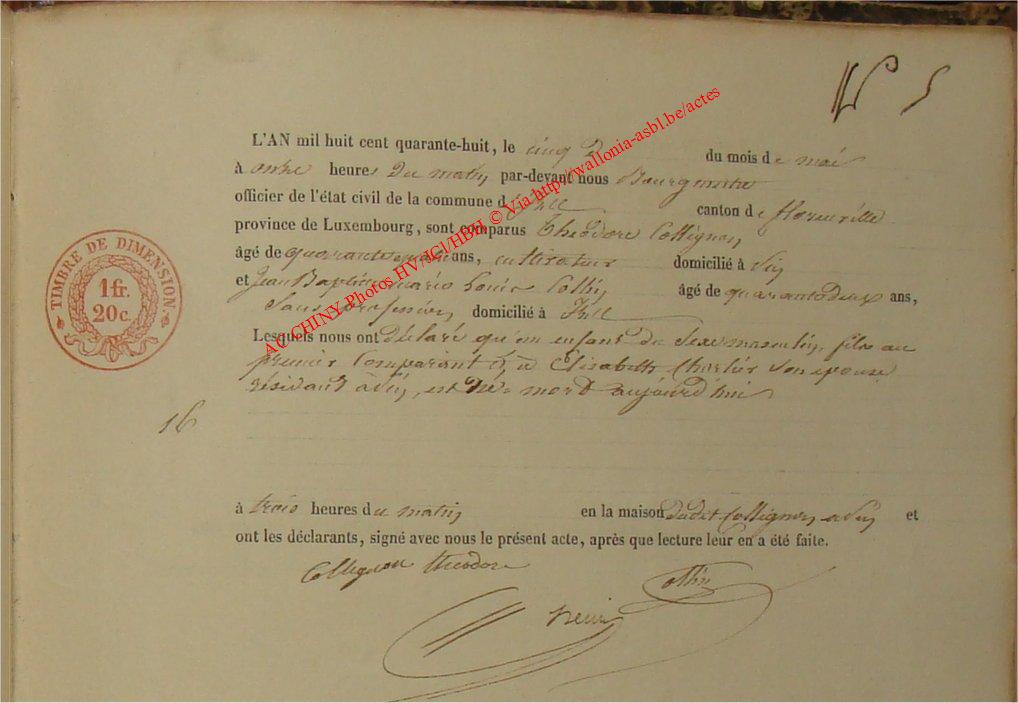 5
L'AN mil huit cent quarante-huit, le cinq du mois de mai
à onze heures du matin par-devant nous Bourgmestre
officier de l'état civil de la commune d canton de florenville
province de Luxembourg, sont comparus Théodore Collignon
âgé de ans, cultivateur domicilié à
et Jean Baptiste Louis Collin âgé de quarante deux ans,
Sans profession domicilié à
Lesquels nous ont déclaré qu'un enfant du sexe masculin, fils au
premier Comparant & à Elisabeth Charlier Son épouse
résidant à est né mort aujourd'hui
16
à trois heures du matin en la maison dudit Collignon à et
ont les déclarants, signé avec nous le présent acte, après que lecture leur en a été faite.
Collignon théodore Collin
TIMBRE DE DIMENSION.
1 fr.
20 c.
AC CHINY Photos HV/JCl/HBH © Via http://wallonia-asbl.be/actes